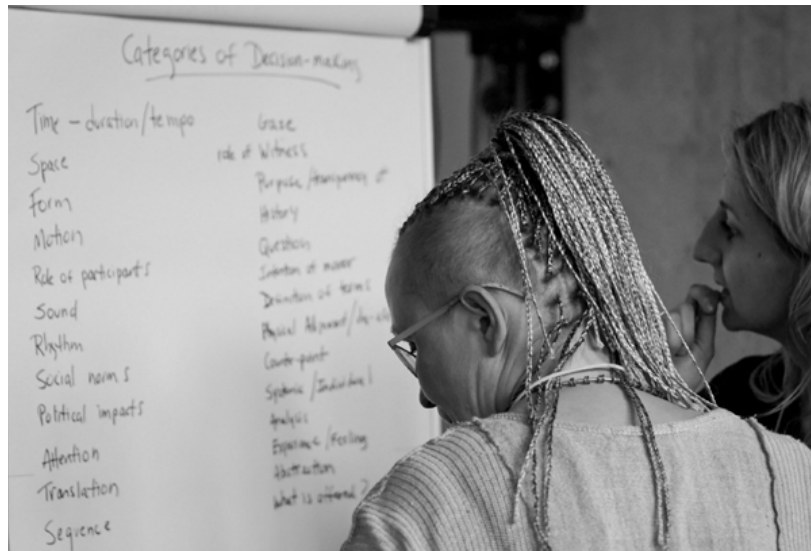 Categories of Decision-making
Time - duration/tempo
Space
Form
Motion
Role of participants
Sound
Rhythm
Social norms
Political impacts
Attention
Translation
Sequence
Gaze
role of Witness
Purpose/transparency of
History
Question
Intention of mover
Definition of terms
Physical Alignment/
Counterpoint
Systemic/Individual
Analysis
Experience/Feeling
Abstraction
What is offered?